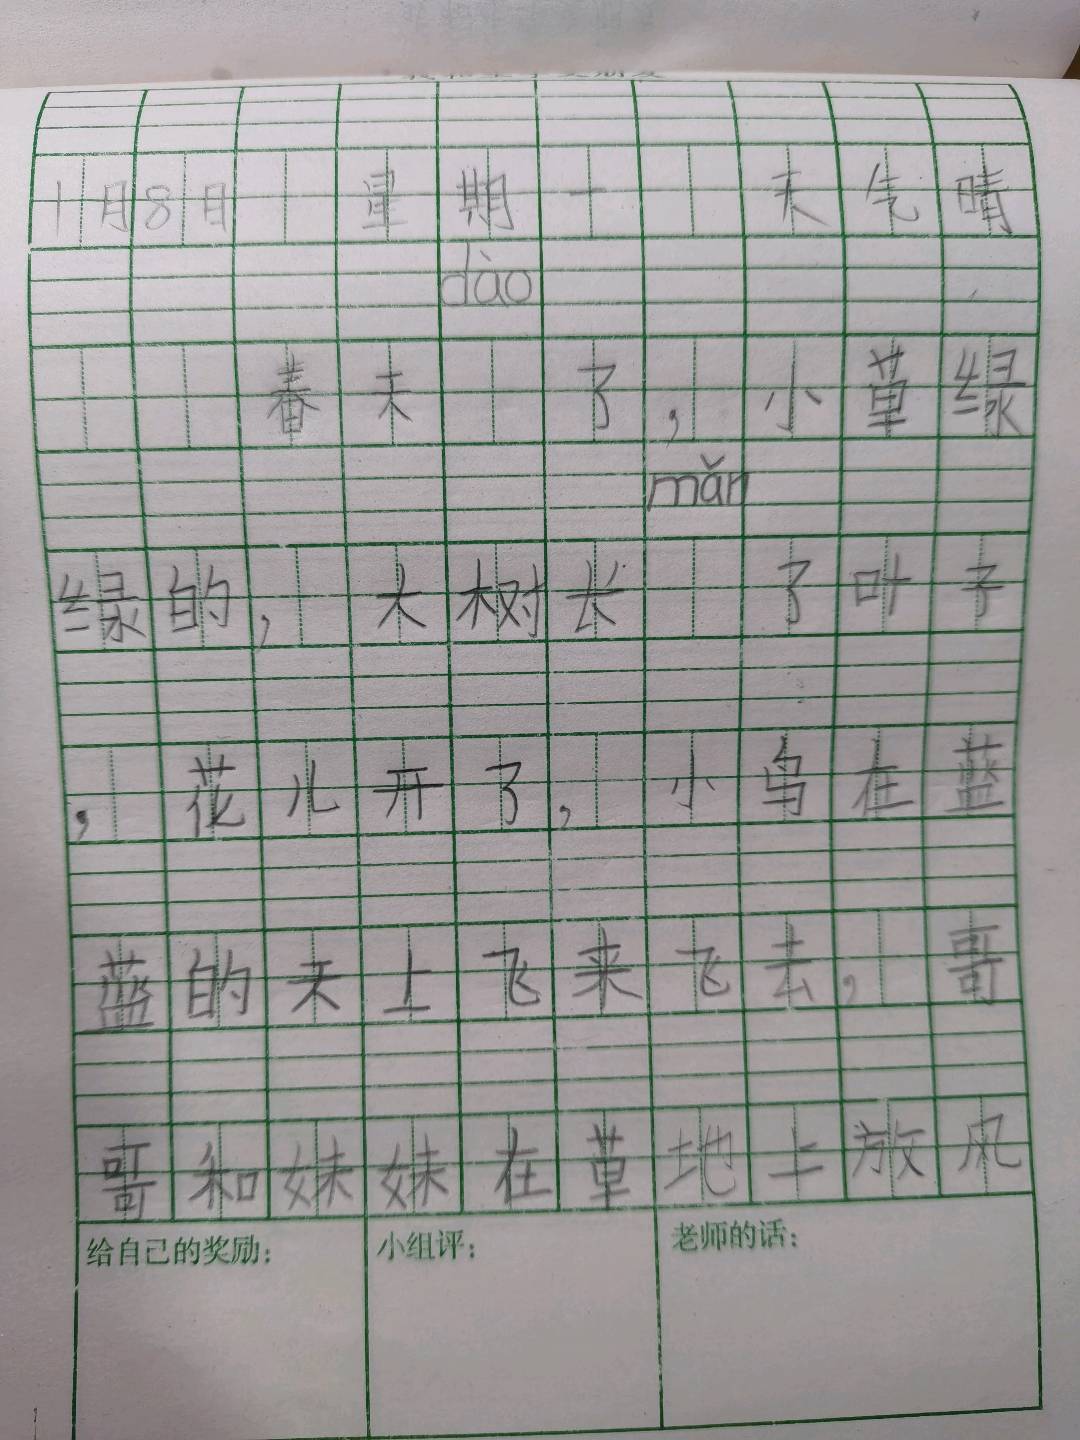 1月8日 星期一 天气晴
dào
春天 了，小草绿
mǎn
绿的，大树长 了叶子
，花儿开了，小鸟在蓝
蓝的天上飞来飞去，哥
哥和妹妹在草地上放风
给自己的奖励： 小组评： 老师的话：